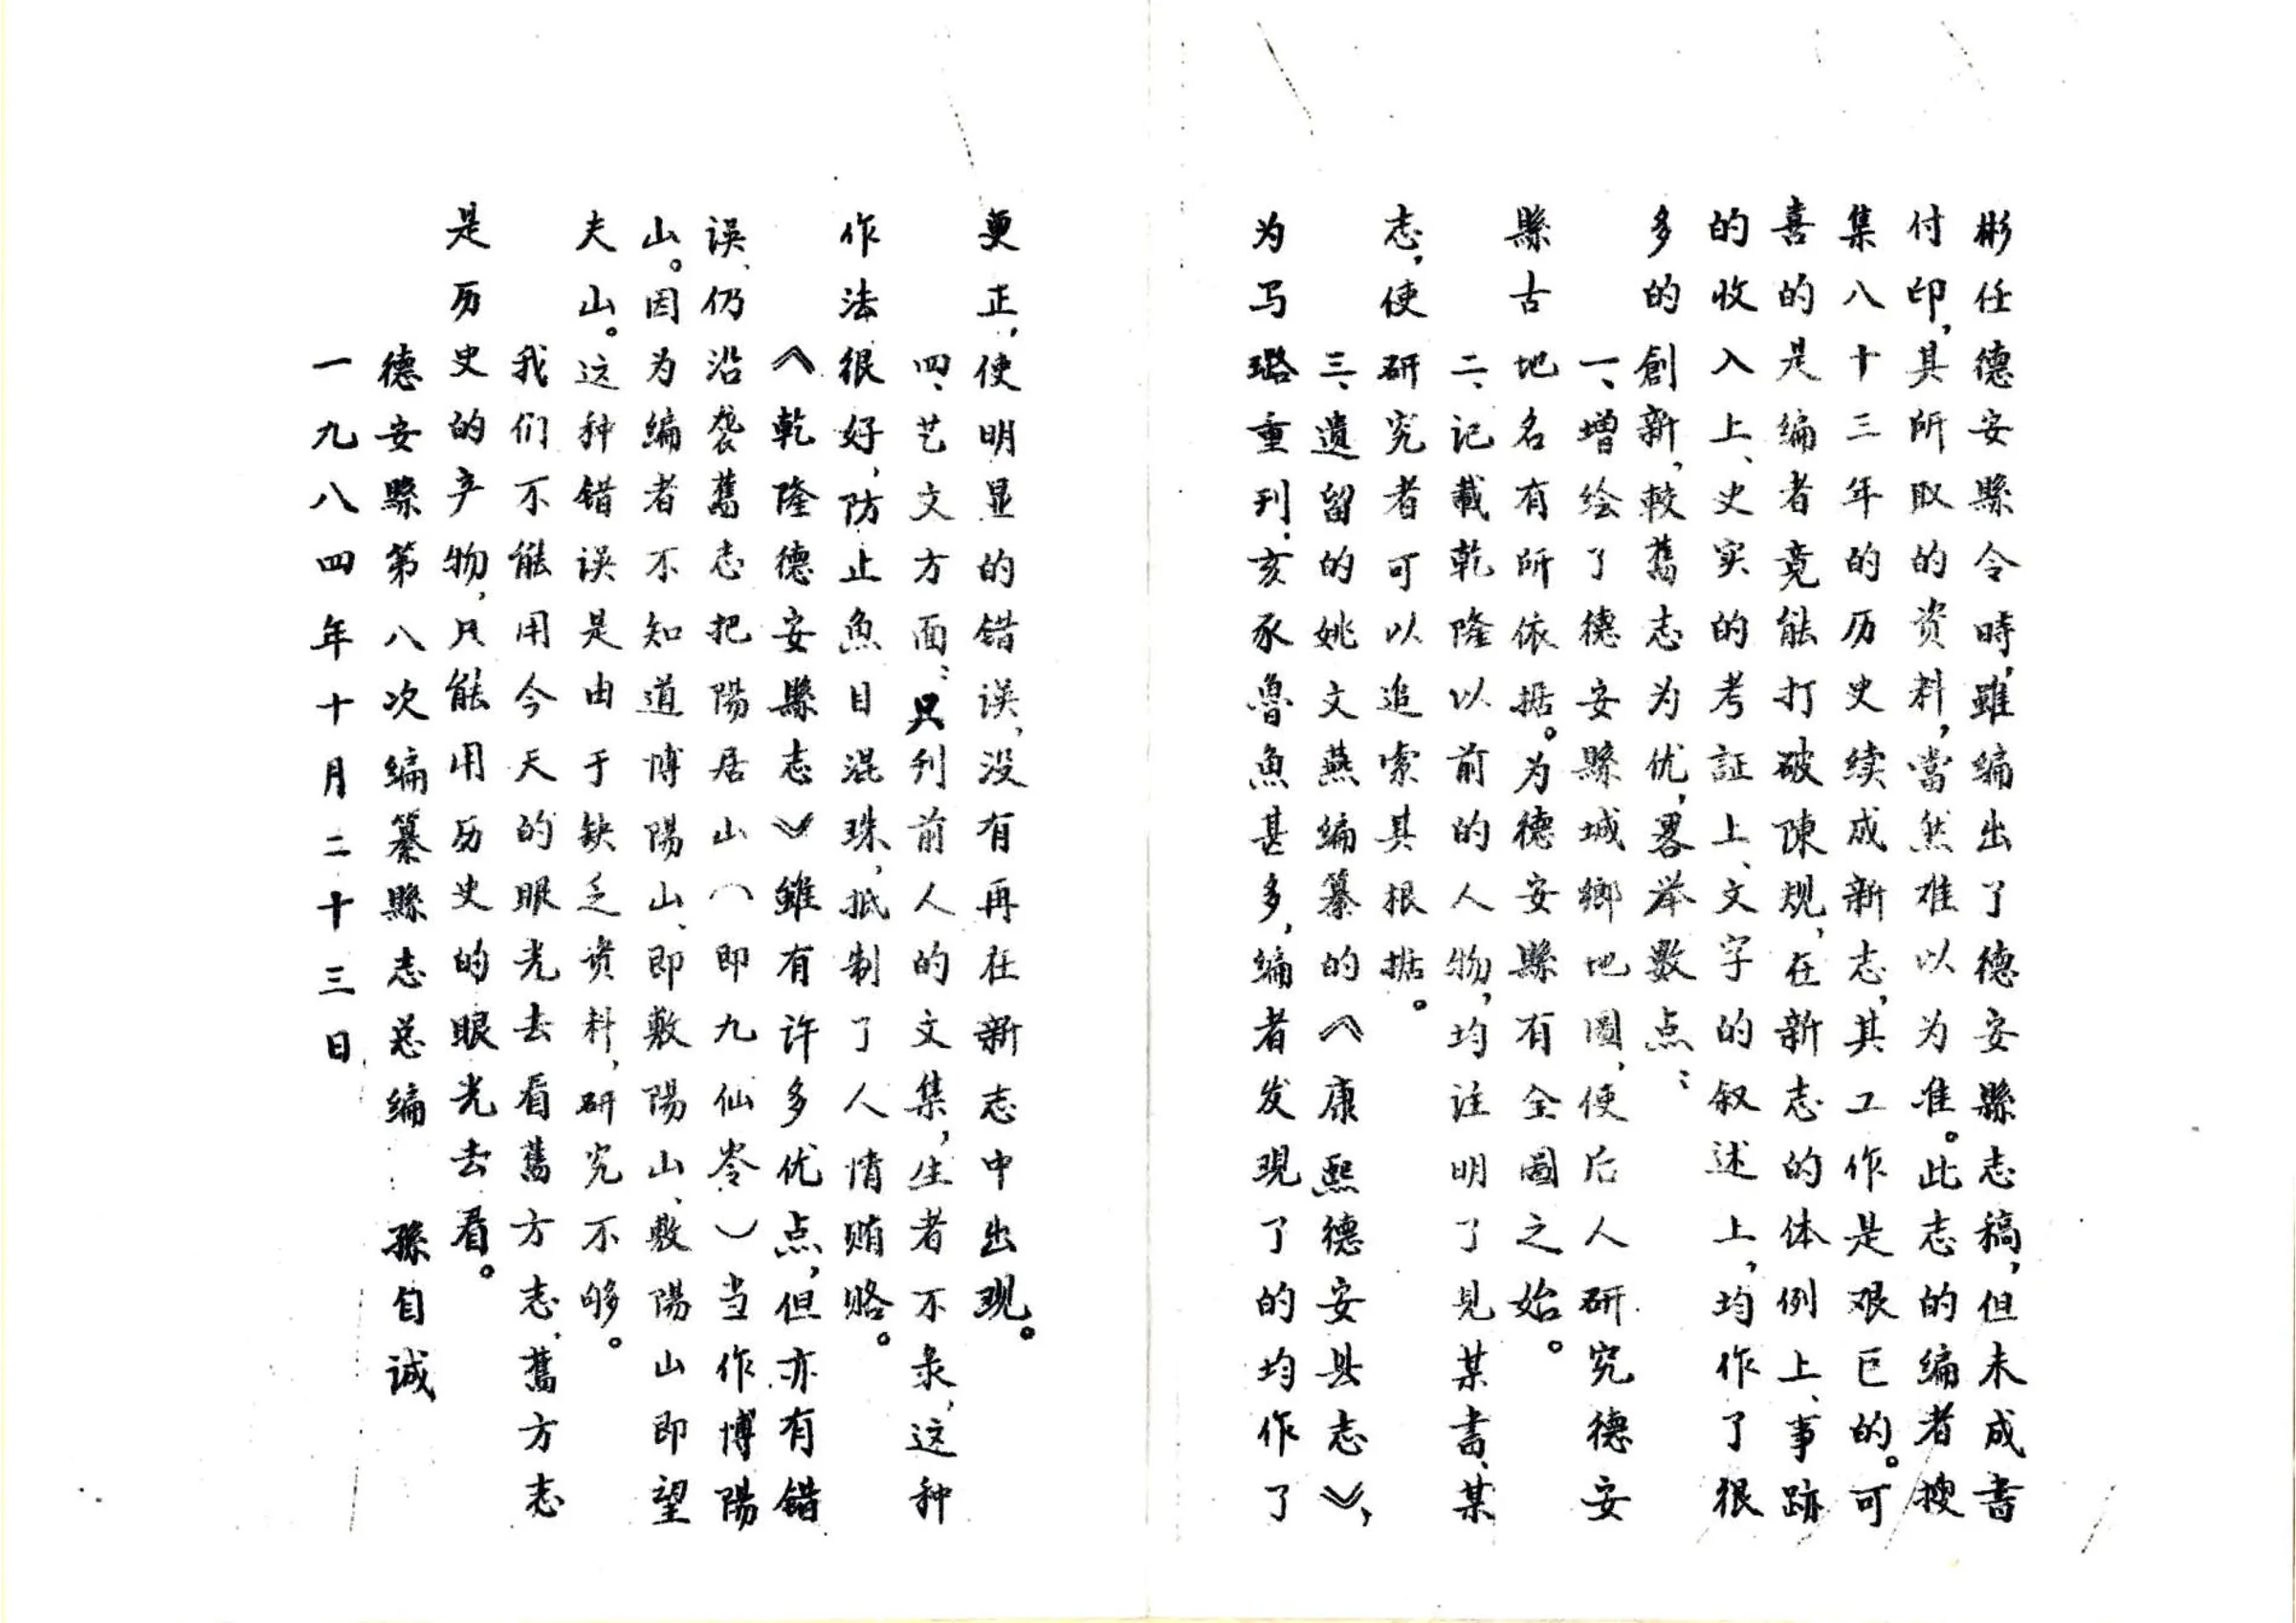 彬任德安縣令時,雖编出了德安縣志稿,但未成書
付印,其所取的资料,當然难以为准。此志的编者搜
集八十三年的历史续成新志,其工作是艰巨的。可
喜的是编者竟能打破陳规,在新志的体例上、事跡
的收入上、史实的考証上、文字的叙述上,均作了很
多的創新,較舊志为优,畧举數点:
一、增绘了德安縣城鄉地圖,使后人研究德安
縣古地名有所依据。为德安縣有全圖之始。
二、记載乾隆以前的人物,均注明了見某書、某
志,使研究者可以追索其根据。
三、遺留的姚文燕编纂的《康熙德安县志》,
为马璐重刊,亥豕魯魚甚多,编者发現了的均作了
更正,使明显的错误,没有再在新志中出现。
四、艺文方面:只刊前人的文集,生者不录,这种
作法很好,防止魚目混珠,抵制了人情贿赂。
《乾隆德安縣志》雖有许多优点,但亦有错
误、仍沿袭舊志把陽居山(即九仙岺)当作博陽
山。因为编者不知道博陽山、即敷陽山、敷陽山即望
夫山。这种错误是由于缺乏资料,研究不够。
我们不能用今天的眼光去看舊方志,舊方志
是历史的产物,只能用历史的眼光去看。
德安縣第八次编纂縣志总编 孫自诚
一九八四年十月二十三日